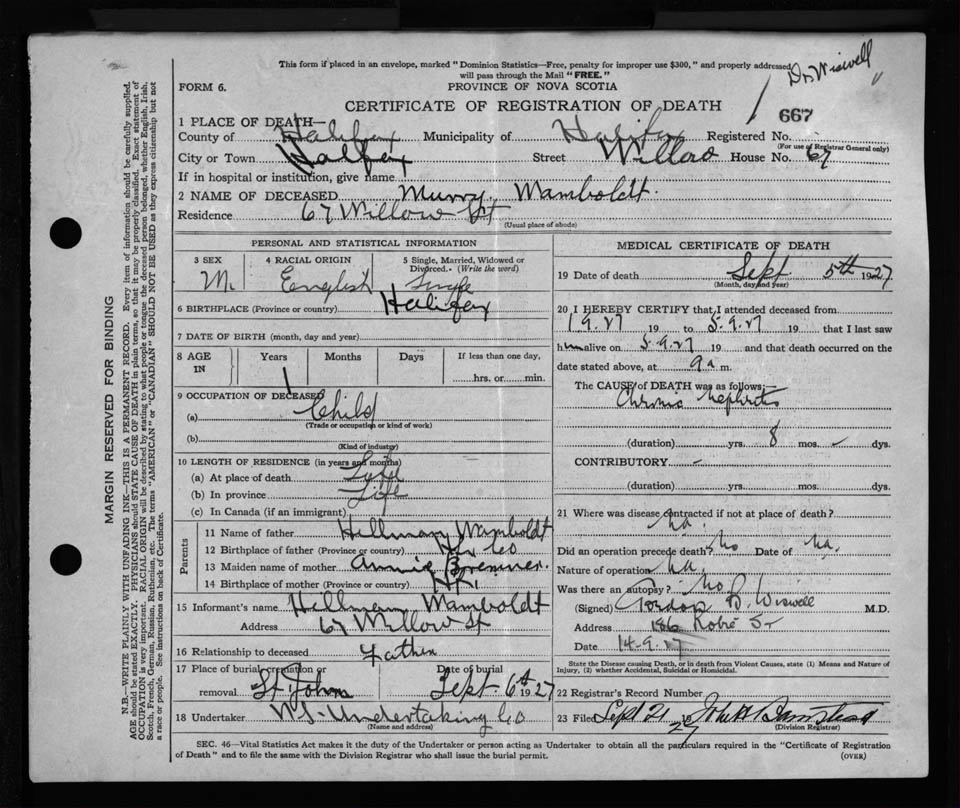 This form if placed in an envelope, marked "Dominion Statistics—Free, penalty for improper use $300," and properly addressed
will pass through the Mail "FREE."
Dr Wiswell
FORM 6.
PROVINCE OF NOVA SCOTIA
CERTIFICATE OF REGISTRATION OF DEATH
667
1 PLACE OF DEATH—
County of Halifax Municipality of Halifax Registered No.
(For use of Registrar General only)
City or Town Halifax Street Willow House No. 67
If in hospital or institution, give name
2 NAME OF DECEASED Murry Mamboldt
Residence 67 Willow St
(Usual place of abode)
PERSONAL AND STATISTICAL INFORMATION
3 SEX M
4 RACIAL ORIGIN English
5 Single, Married, Widowed or Divorced. (Write the word) Single
6 BIRTHPLACE (Province or country) Halifax
7 DATE OF BIRTH (month, day and year)
8 AGE IN Years 1 Months Days If less than one day, hrs. or min.
9 OCCUPATION OF DECEASED
(a) Child
(Trade or occupation or kind of work)
(b)
(Kind of industry)
10 LENGTH OF RESIDENCE (in years and months)
(a) At place of death Life
(b) In province Life
(c) In Canada (if an immigrant)
Parents
11 Name of father Hillman Mamboldt
12 Birthplace of father (Province or country) Hfx Co
13 Maiden name of mother Annie Bremner
14 Birthplace of mother (Province or country)
15 Informant's name Hillman Mamboldt
Address 67 Willow St
16 Relationship to deceased Father
17 Place of burial, cremation or removal St. Johns Date of burial Sept 6th 1927
18 Undertaker N.S. Undertaking Co
(Name and address)
MEDICAL CERTIFICATE OF DEATH
19 Date of death Sept 5th 1927
(Month, day and year)
20 I HEREBY CERTIFY that I attended deceased from
1.9.27 19 to 5.9.27 19 that I last saw
him alive on 5.9.27 19 and that death occurred on
date stated above, at 9 a m.
The CAUSE of DEATH was as follows:—
Chronic Nephritis
(duration) yrs. 8 mos. - dys.
CONTRIBUTORY -
(duration) yrs. mos. dys.
21 Where was disease contracted if not at place of death?
na.
Did an operation precede death? No Date of na.
Nature of operation na.
Was there an autopsy? No
(Signed) Gordon B. Wiswell M.D.
Address 186 Robie St
Date 14-9-27
State the Disease causing Death, or in death from Violent Causes, state (1) Means and Nature of
Injury, (2) whether Accidental, Suicidal or Homicidal.
22 Registrar's Record Number
23 Filed Sept 21 27
(Division Registrar)
SEC. 46—Vital Statistics Act makes it the duty of the Undertaker or person acting as Undertaker to obtain all the particulars required in the "Certificate of Registration
of Death" and to file the same with the Division Registrar who shall issue the burial permit.
(OVER)
MARGIN RESERVED FOR BINDING
N.B.—WRITE PLAINLY WITH UNFADING INK—THIS IS A PERMANENT RECORD. Every item of information should be carefully supplied.
AGE should be stated EXACTLY. PHYSICIANS should STATE CAUSE OF DEATH in plain terms, so that it may be properly classified. Exact statement of
OCCUPATION is very important. RACIAL ORIGIN will be described by stating to what people or tongue the deceased person belonged, whether English, Irish,
Scotch, French, German, Russian, Ruthenian, etc. The terms "AMERICAN" or "CANADIAN" SHOULD NOT BE USED as they express citizenship but not
a race or people. See instructions on back of Certificate.